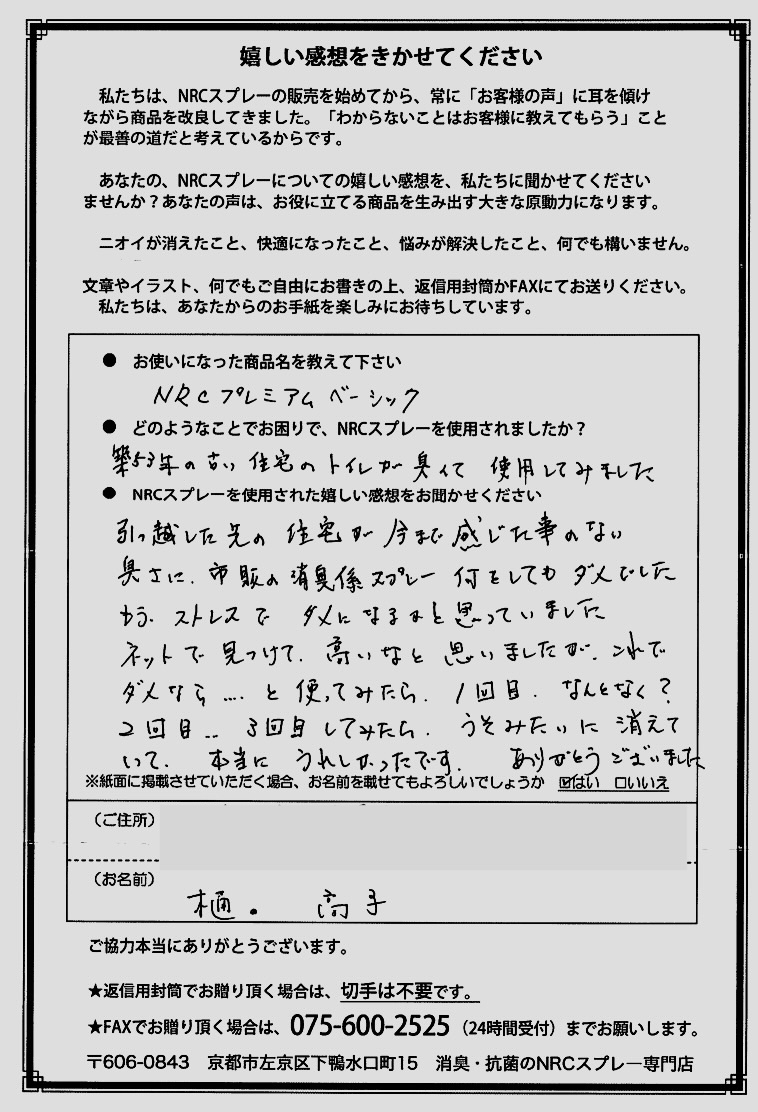 嬉しい感想をきかせてください
私たちは、NRCスプレーの販売を始めてから、常に「お客様の声」に耳を傾け
ながら商品を改良してきました。「わからないことはお客様に教えてもらう」こと
が最善の道だと考えているからです。
あなたの、NRCスプレーについての嬉しい感想を、私たちに聞かせてください
ませんか？あなたの声は、お役に立てる商品を生み出す大きな原動力になります。
ニオイが消えたこと、快適になったこと、悩みが解決したこと、何でも構いません。
文章やイラスト、何でもご自由にお書きの上、返信用封筒かFAXにてお送りください。
私たちは、あなたからのお手紙を楽しみにお待ちしています。
● お使いになった商品名を教えて下さい
NRCプレミアムベーシック
● どのようなことでお困りで、NRCスプレーを使用されましたか？
築53年の古い住宅のトイレが臭くて 使用してみました
● NRCスプレーを使用された嬉しい感想をお聞かせください
引っ越した先の住宅が今まで感じた事のない
臭さに、市販の消臭係スプレー何をしてもダメでした
もう、ストレスでダメになるかと思っていました
ネットで見つけて、高いなと思いましたが、これで
ダメなら…. と使ってみたら、1回目、なんとなく？
2回目.. 3回目してみたら、うそみたいに消えて
いって、本当にうれしかったです。ありがとうございました
※紙面に掲載させていただく場合、お名前を載せてもよろしいでしょうか ☑はい □いいえ
（ご住所）
（お名前）
樋。 高子
ご協力本当にありがとうございます。
★返信用封筒でお贈り頂く場合は、切手は不要です。
★FAXでお贈り頂く場合は、075-600-2525（24時間受付）までお願いします。
〒606-0843 京都市左京区下鴨水口町15 消臭・抗菌のNRCスプレー専門店